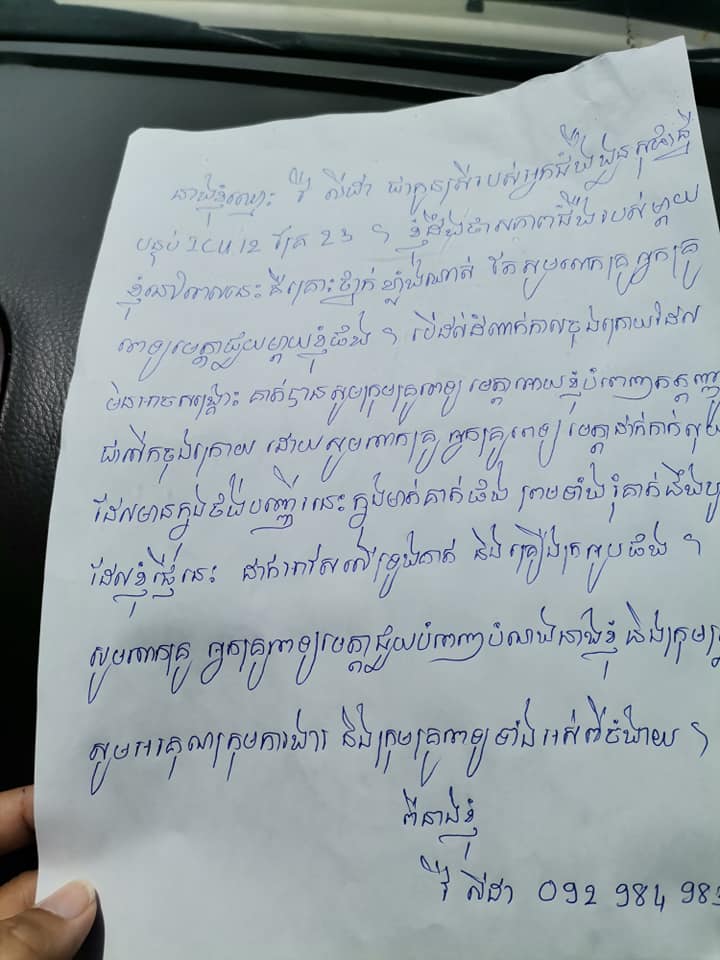 នាងខ្ញុំឈ្មោះ រី លីដា ជាកូនស្រីរបស់អ្នកជំងឺ
បន្ទប់ ICU 12 គ្រែ 23 ។ ខ្ញុំដឹងថាសភាពជំងឺរបស់ម្តាយ
ខ្ញុំនៅពេលនេះ គឺគ្រោះថ្នាក់ខ្លាំងណាស់ តែសូមលោកគ្រូ អ្នកគ្រូ
ពេទ្យមេត្តាជួយម្តាយខ្ញុំផង ។ បើដល់ដំណាក់កាលចុងក្រោយដែល
មិនអាចសង្គ្រោះ គាត់បានសូមក្រុមគ្រូពេទ្យ មេត្តាអោយខ្ញុំបំពេញកតញ្ញូ
ជាលើកចុងក្រោយ ដោយសូមលោកគ្រូ អ្នកគ្រូពេទ្យ មេត្តាដាក់កាក់
ដែលមានក្នុងថង់បញ្ញើរនេះ ក្នុងមាត់គាត់ផង ព្រមទាំងរុំគាត់នឹង
ដែលខ្ញុំផ្ញើនេះ ដាក់អាវសលើទ្រូងគាត់ និងគ្រឿងក្រអូបផង ។
សូមលោកគ្រូ អ្នកគ្រូពេទ្យមេត្តាជួយបំពេញបំណងនាងខ្ញុំ និងក្រុម
សូមអរគុណក្រុមការងារ និងក្រុមគ្រូពេទ្យទាំងអស់ពីចំងាយ ។
ពីនាងខ្ញុំ
រី លីដា 092 984 983